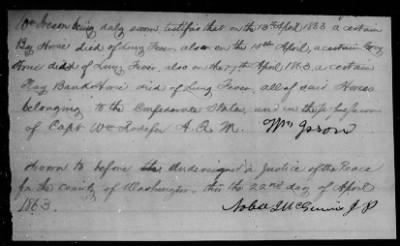 Wm Ipson being duly sworn, testifies that on the 13th April 1863 a certain
Bay Horse died of Lung Fever, also on the 15th April, a certain Gray
Horse died of Lung Fever, also on the April 1863, a certain
died of Lung Fever, all of said Horses
belonging to the Confederate States, and in the possession
of Capt Wm Rodefer A. Q. M. Wm Ipson
Sworn to before the undersigned a Justice of the Peace
for the county of Washington this the 22nd day of April
1863. J P